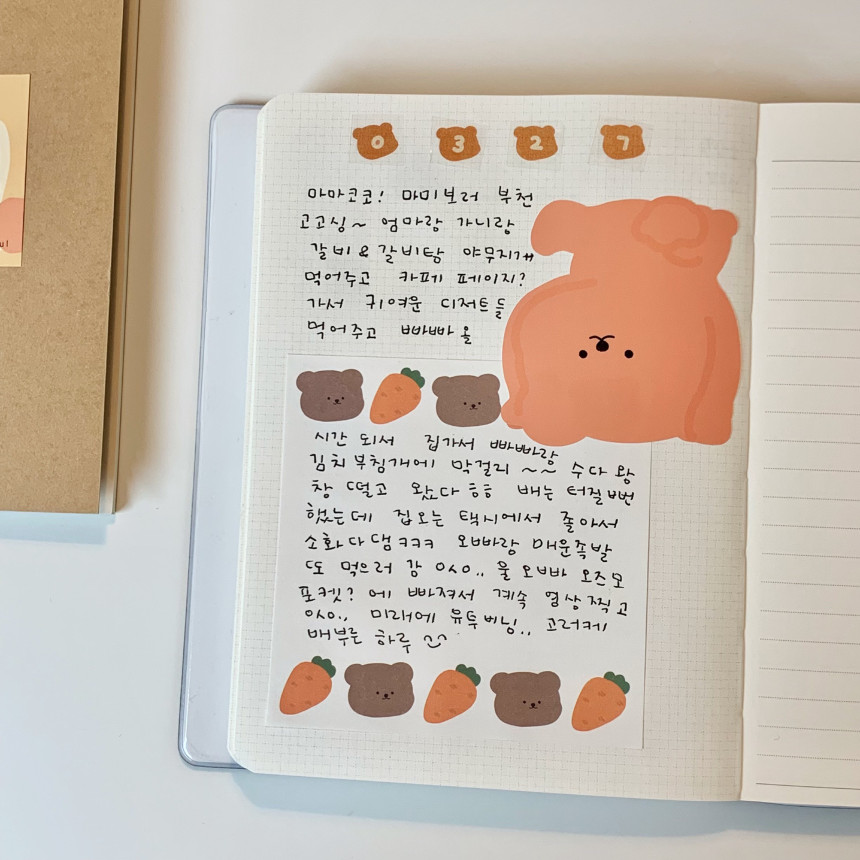 0 3 2 7
마마코코! 마미보러 부천
고고싱~ 엄마랑 가니랑
갈비&갈비탕 야무지게
먹어주고 카페 페이지?
가서 귀여운 디저트들
먹어주고 빠빠 올
시간 되서 집가서 빠빠랑
김치부침개에 막걸리 ~~ 수다 왕
창 떨고 왔다 ㅎㅎ 배는 터질뻔
했는데 집오는 택시에서 졸아서
소화 다댐 ㅋㅋㅋ 오빠랑 매운족발
또 먹으러 감 이이.. 울 오빠 오즈모
포켓? 에 빠져서 계속 영상찍고
이이.. 미래에 유투버님.. 고러케
배부른 하루
ul